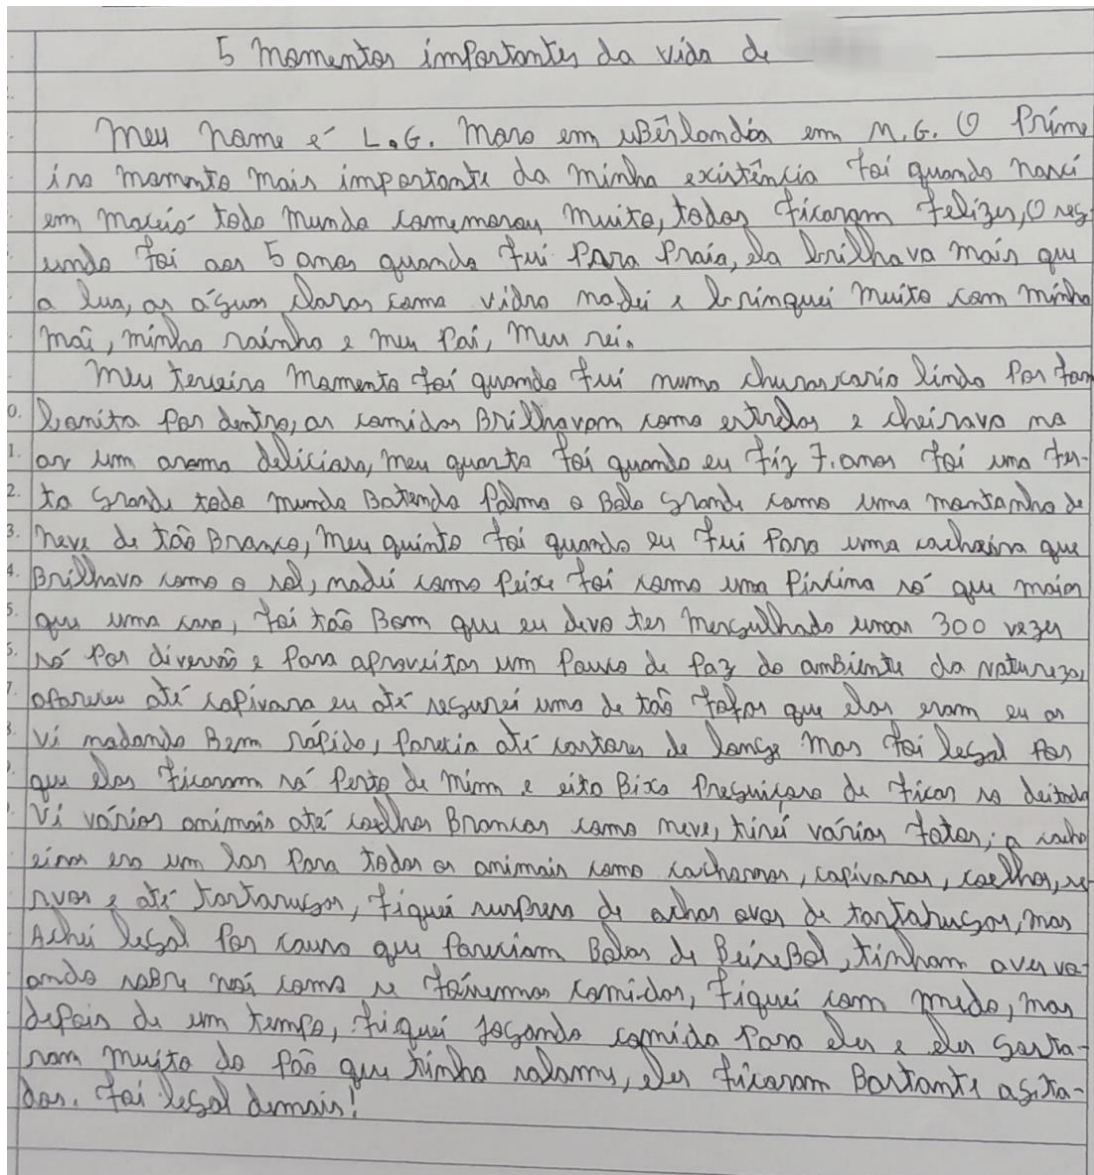 5 Momentos importantes da vida de
Meu nome é L.G. Moro em uBêrlandia em M.G. O Prime
iro momento mais importante da minha existência foi quando nasci
em maceió todo mundo comemorou muito, todos ficaram felizes, O seg-
undo foi aos 5 anos quando fui Para Praia, ela brilhava mais que
a lua, as águas claras como vidro nadei e brinquei muito com minha
mãi, minha rainha e meu Pai, Meu rei.
Meu terceiro Momento foi quando fui numa churascaria lindo Por fora
bonita por dentro, as comidas Brilhavam como estrelas e cheirava no
ar um aroma delicioso, meu quarto foi quando eu fiz 7.anos foi uma fes-
ta grande todo mundo Batendo Palma o Bolo grande como uma montanha de
neve de tão Branco, Meu quinto foi quando eu fui Para uma cachoeira que
Brilhava como o sol, nadei como Peixe foi como uma Piscina só que maior
que uma casa, foi tão Bom que eu devo ter mergulhado umas 300 vezes
só Por diversão e Para aproveitar um Pouco de Paz do ambiente da natureza,
apareceu até capivara eu até segurei uma de tão fofas que elas eram eu as
vi nadando Bem rápido, Parecia até castores de longe mas foi legal Por
que elas ficaram só Perto de mim e eita Bixo Preguiçoso de ficar so deitado
Vi vários animais até coelhos Brancos como neve, tirei várias fotos; a cacho
eira era um lar Para todos os animais como cachorros, capivaras, coelhos, ce-
rvos e até tartarugas, fiquei surpreso de achar ovos de tartarugas, mas
Achei legal Por causa que Pareciam Bolas de BeiseBol, tinham aves vo-
ando soBre nós como se fôssemos comidas, fiquei com medo, mas
depois de um tempo, fiquei jogando comida Para eles e eles gosta-
ram muito do Pão que tinha salame, eles ficaram Bastante agita-
dos. foi legal demais!